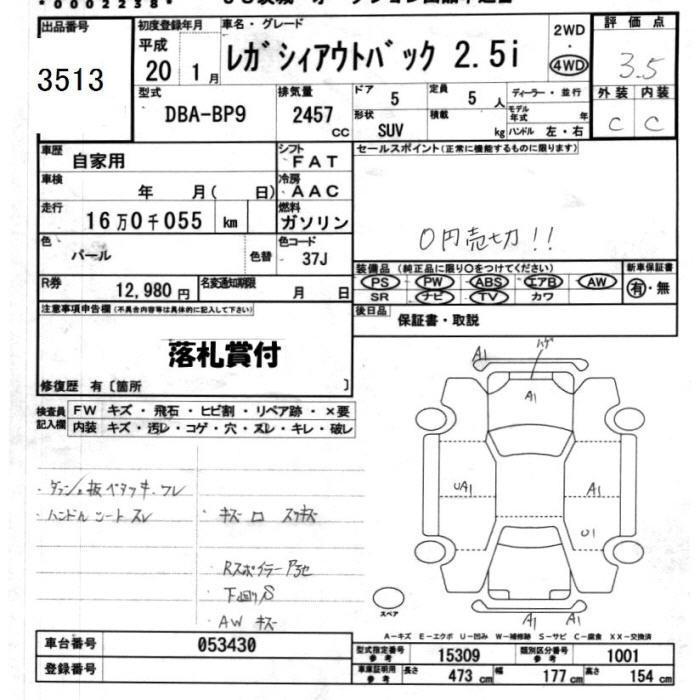 *0002238*
出品番号
3513
初度登録年月
平成
20 1月
車名・グレード
レガシィアウトバック 2.5i
2WD
・
4WD
評価点
3.5
外装 内装
C C
型式
DBA-BP9
排気量
2457
cc
ドア
5
定員
5 人
形状
SUV
積載
kg
ディーラー・並行
モデル年式 年
ハンドル 左・右
車歴
自家用
シフト
FAT
車検
年 月( 日)
冷房
AAC
走行
16万0千055 km
燃料
ガソリン
色
パール
色替
色コード
37J
R券
12,980円
名変通知期限
月 日
セールスポイント(正常に機能するものに限ります)
0円売切!!
装備品 (純正品に限り○をつけてください)
PS PW ABS エアB AW
SR ナビ TV カワ
新車保証書
有・無
後日品
保証書・取説
注意事項申告欄(不具合内容等は具体的に記入して下さい)
落札賞付
修復歴 有〔箇所 〕
検査員
記入欄
FW キズ・飛石・ヒビ割・リペア跡・×要
内装 キズ・汚レ・コゲ・穴・スレ・キレ・破レ
ハンドル シート スレ
Rスポイラー
下回りS
AW キズ
A1
ハゲ
A1
UA1
A1
U1
A1
A1
スペア
A-キズ E-エクボ U-凹み W-補修跡 S-サビ C-腐食 XX-交換済
車台番号
053430
登録番号
型式指定番号
参考
15309
類別区分番号
参考
1001
車庫証明用
参考
長さ 473 cm 幅 177 cm 高さ 154 cm